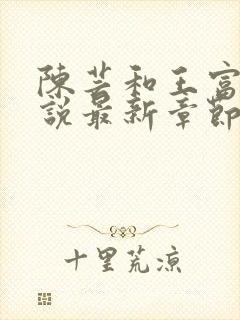 陳芸和王富
說最新章節
十里荒涼